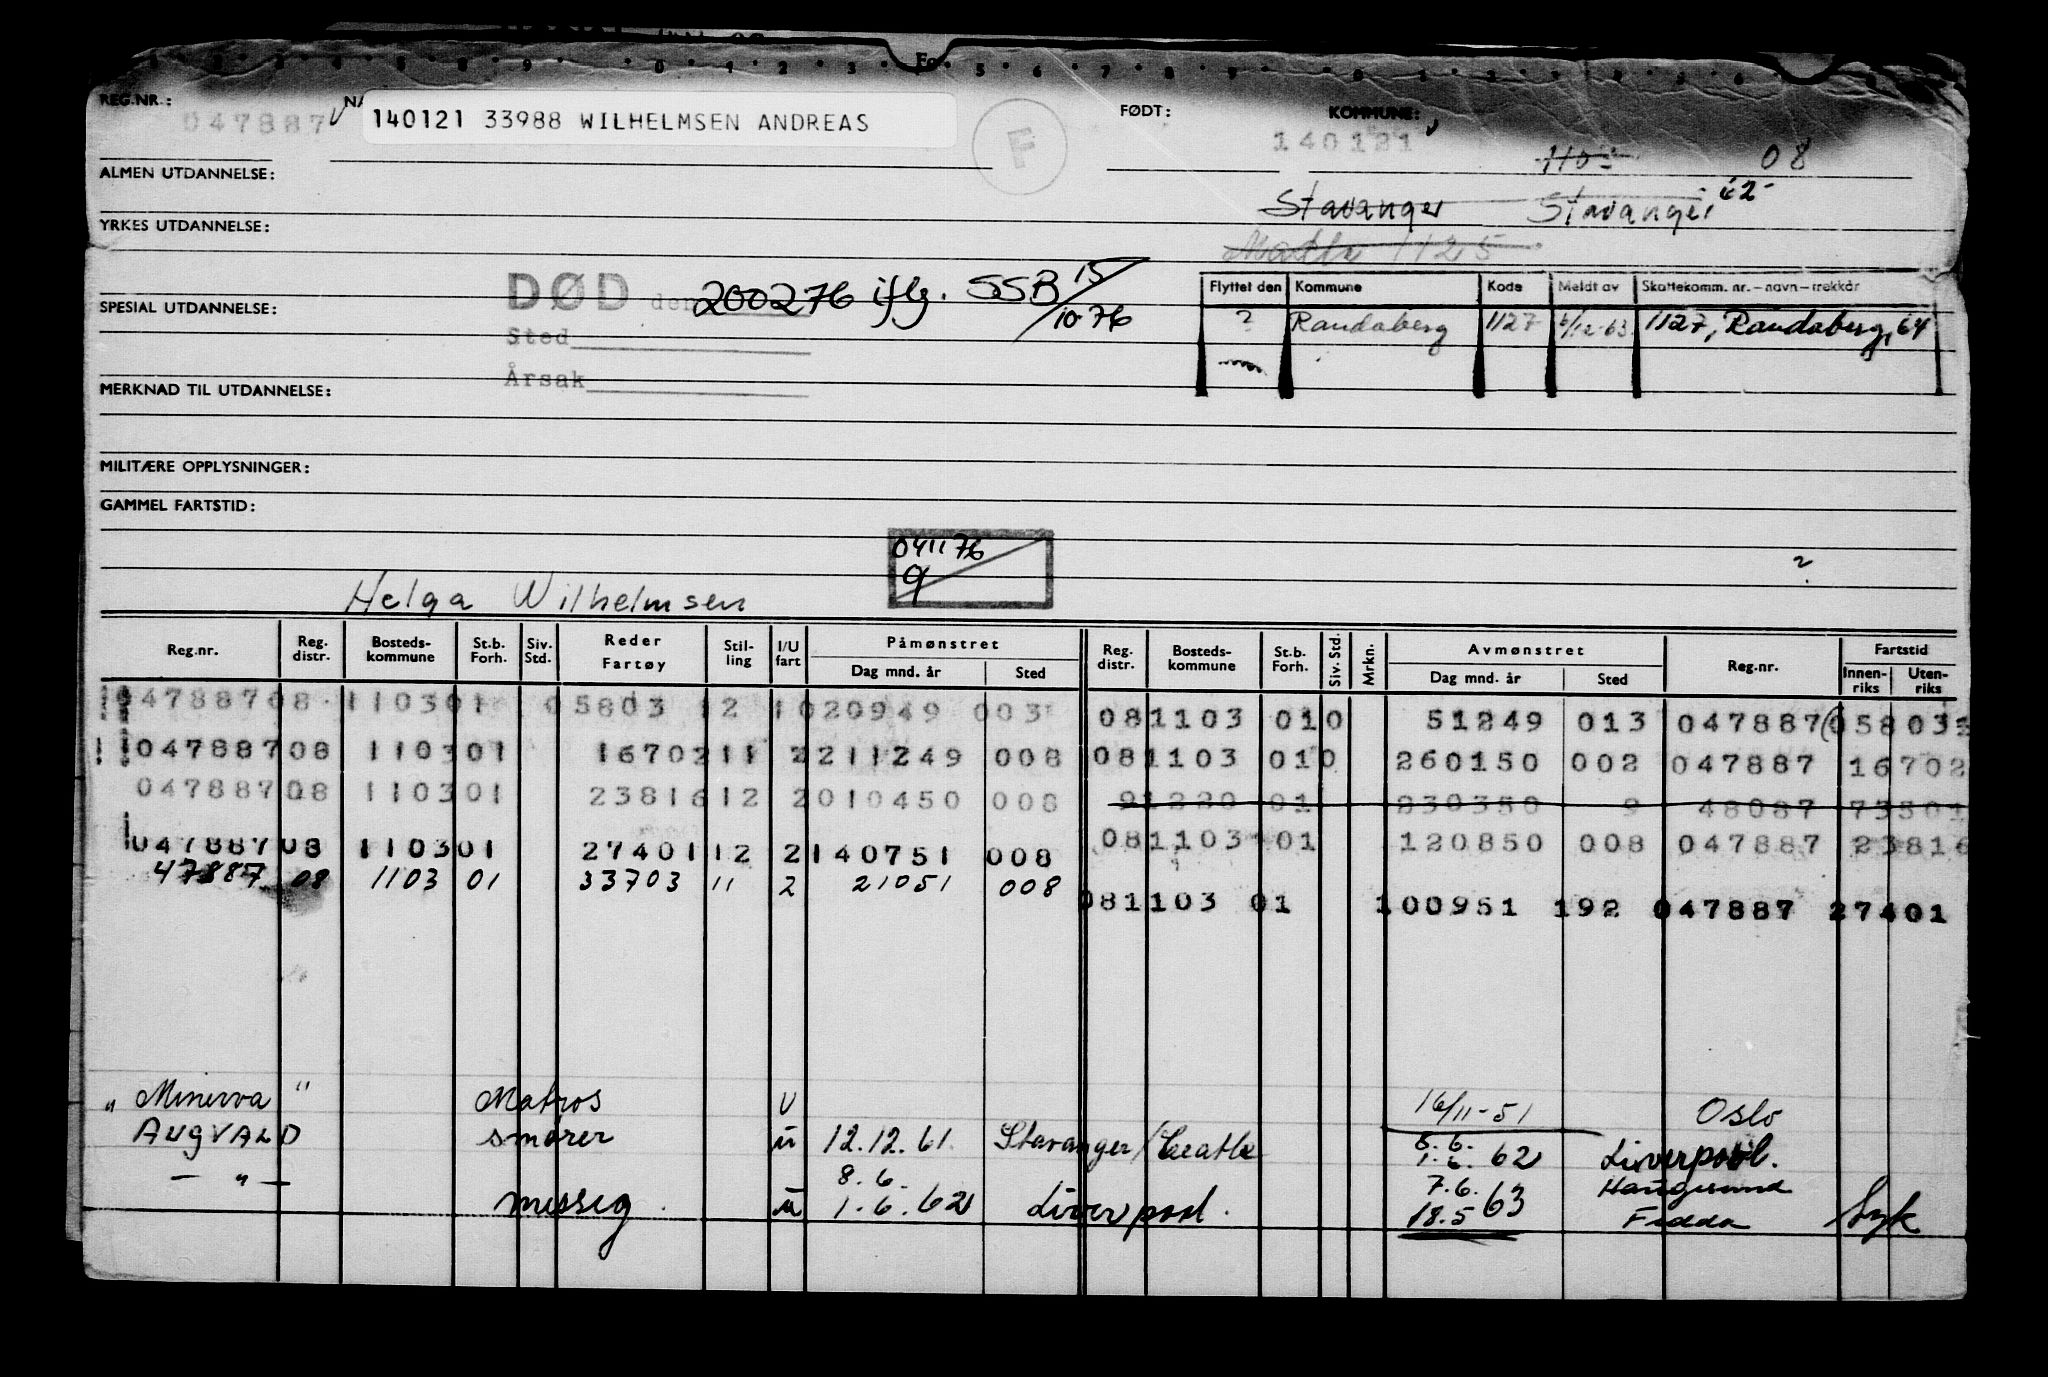 REG.NR.: 047887 V NA 140121 33988 WILHELMSEN ANDREAS F FØDT: 140121 KOMMUNE:
ALMEN UTDANNELSE: 08
Stavanger Stavanger
YRKES UTDANNELSE: 1125
DØD den 200276 iflg. SSB 15/10 76
Flyttet den Kommune Kode Meldt av Skattekomm. nr. – navn – trekkår
SPESIAL UTDANNELSE: ? Randaberg 1127 6/12-63 1127, Randaberg, 64
Sted
Årsak
MERKNAD TIL UTDANNELSE:
MILITÆRE OPPLYSNINGER:
GAMMEL FARTSTID:
041176
9
?
Helga Wilhelmsen
Reg.nr. Reg. distr. Bosteds-kommune St.b. Forh. Siv. Std. Reder Fartøy Stil-ling I/U fart Påmønstret Dag mnd. år Sted Reg. distr. Bosteds-kommune St.b. Forh. Siv. Std. Mrkn. Avmønstret Dag mnd. år Sted Reg.nr. Fartstid Innen-riks Uten-riks
047887 08 1103 01 05803 12 1 020949 003 08 1103 01 0 51249 013 047887 05803
047887 08 1103 01 16702 11 2 211249 008 08 1103 01 0 260150 002 047887 16702
047887 08 1103 01 23816 12 2 010450 008 9 1220 01 230350 9 48087 73501
047887 08 1103 01 27401 12 2 140751 008 08 1103 01 120850 008 047887 23816
47887 08 1103 01 33703 11 2 21051 008 08 1103 01 100951 192 047887 27401
"Minerva" Matros U 16/11-51 Oslo
AUGVALD smører u 12.12.61 Stavanger/Seattle 8.6. 1.6. 62 Liverpool.
— " — messeg. u 8.6. 1.6.62 Liverpool. 7.6. 18.5 63 Haugesund Fedda Syk